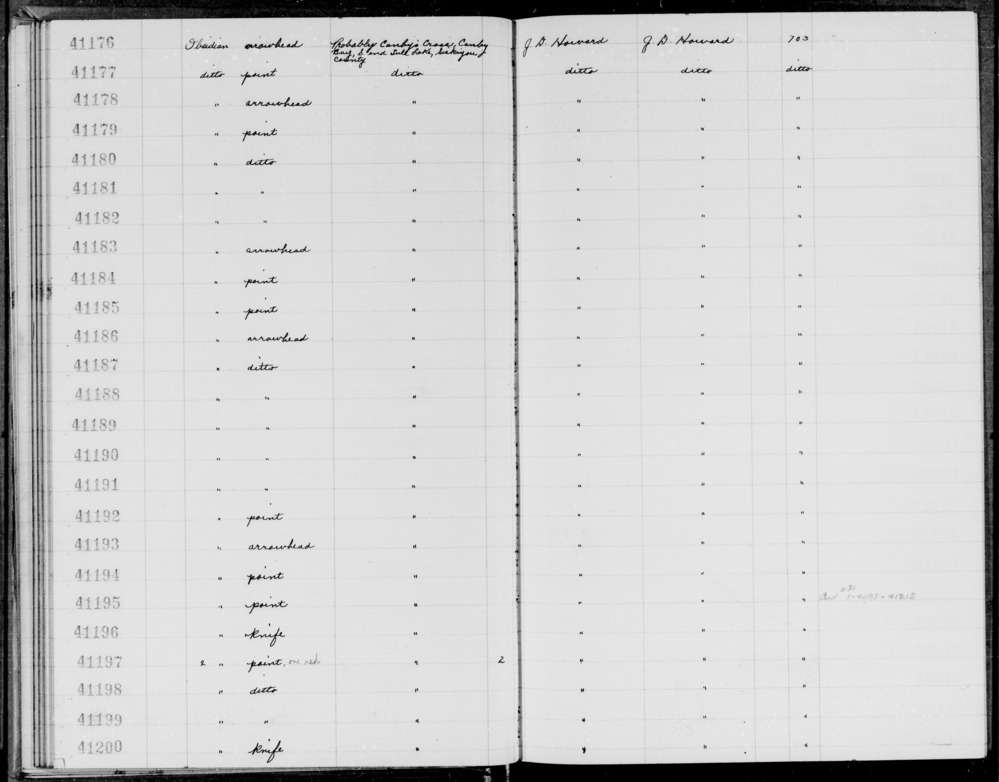 41176 Obsidian arrowhead Probably Canby's Cross, Canby J D Howard J D Howard 703
Bay, S. end Tule Lake, Siskiyou
County
41177 ditto point ditto ditto ditto ditto
41178 " arrowhead " " " "
41179 " point " " " "
41180 " ditto " " " "
41181 " " " " " "
41182 " " " " " "
41183 " arrowhead " " " "
41184 " point " " " "
41185 " point " " " "
41186 " arrowhead " " " "
41187 " ditto " " " "
41188 " " " " " "
41189 " " " " " "
41190 " " " " " "
41191 " " " " " "
41192 " point " " " "
41193 " arrowhead " " " "
41194 " point " " " "
41195 " point " " " "
41196 " knife " " " "
41197 2 " point, " 2 " " "
41198 " ditto " " " "
41199 " " " " " "
41200 " knife " " " "